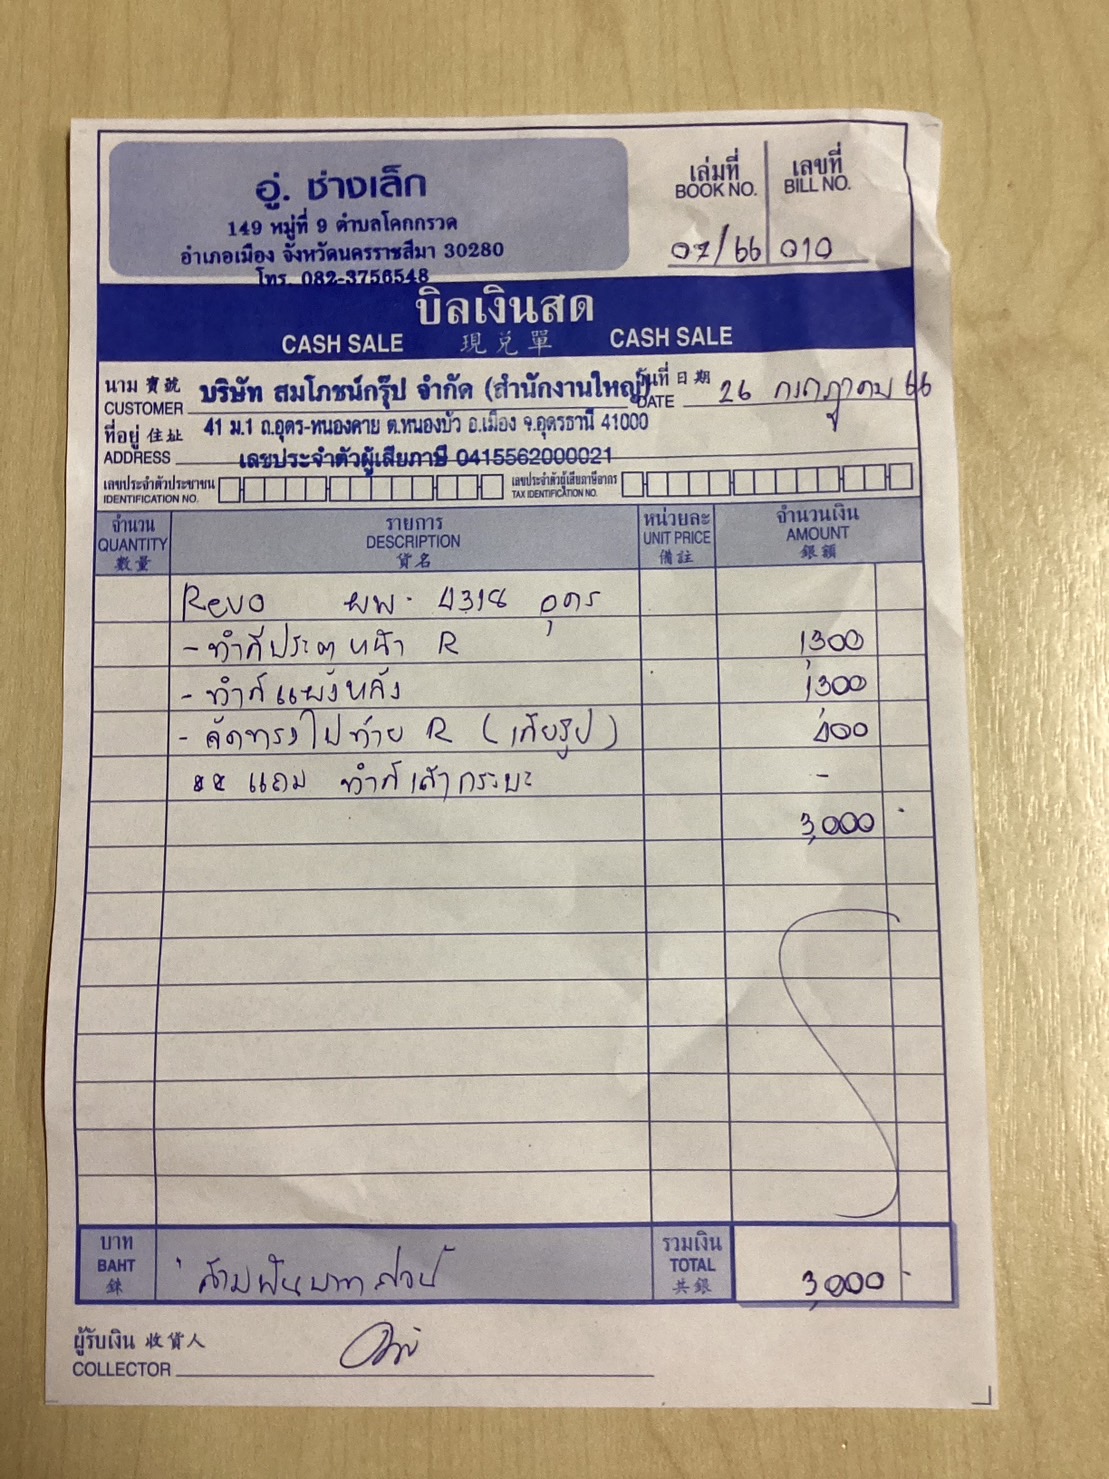 อู่. ช่างเล็ก
149 หมู่ที่ 9 ตำบลโคกกรวด
อำเภอเมือง จังหวัดนครราชสีมา 30280
โทร. 082-3756548
เล่มที่ เลขที่
BOOK NO. BILL NO.
07/66 010
บิลเงินสด
CASH SALE 現兑單 CASH SALE
นาม 寶號 บริษัท สมโภชน์กรุ๊ป จำกัด (สำนักงานใหญ่) วันที่ 日期 26 กรกฎาคม 66
CUSTOMER DATE
ที่อยู่ 住址 41 ม.1 ถ.อุดร-หนองคาย ต.หนองบัว อ.เมือง จ.อุดรธานี 41000
ADDRESS เลขประจำตัวผู้เสียภาษี 0415562000021
เลขประจำตัวประชาชน เลขประจำตัวผู้เสียภาษีอากร
IDENTIFICATION NO. TAX IDENTIFICATION NO.
จำนวน รายการ หน่วยละ จำนวนเงิน
QUANTITY DESCRIPTION UNIT PRICE AMOUNT
數量 貨名 備註 銀額
Revo ยพ. 4318 อุดร
- ทำสีประตูหน้า R 1,300
- ทำสีแผงหลัง 1,300
- ดัดทรงไฟท้าย R (เสียรูป) 400
** แถม ทำสีเสากระบะ -
3,000 -
บาท รวมเงิน
BAHT สามพันบาทถ้วน TOTAL 3,000 -
銖 共銀
ผู้รับเงิน 收貨人
COLLECTOR